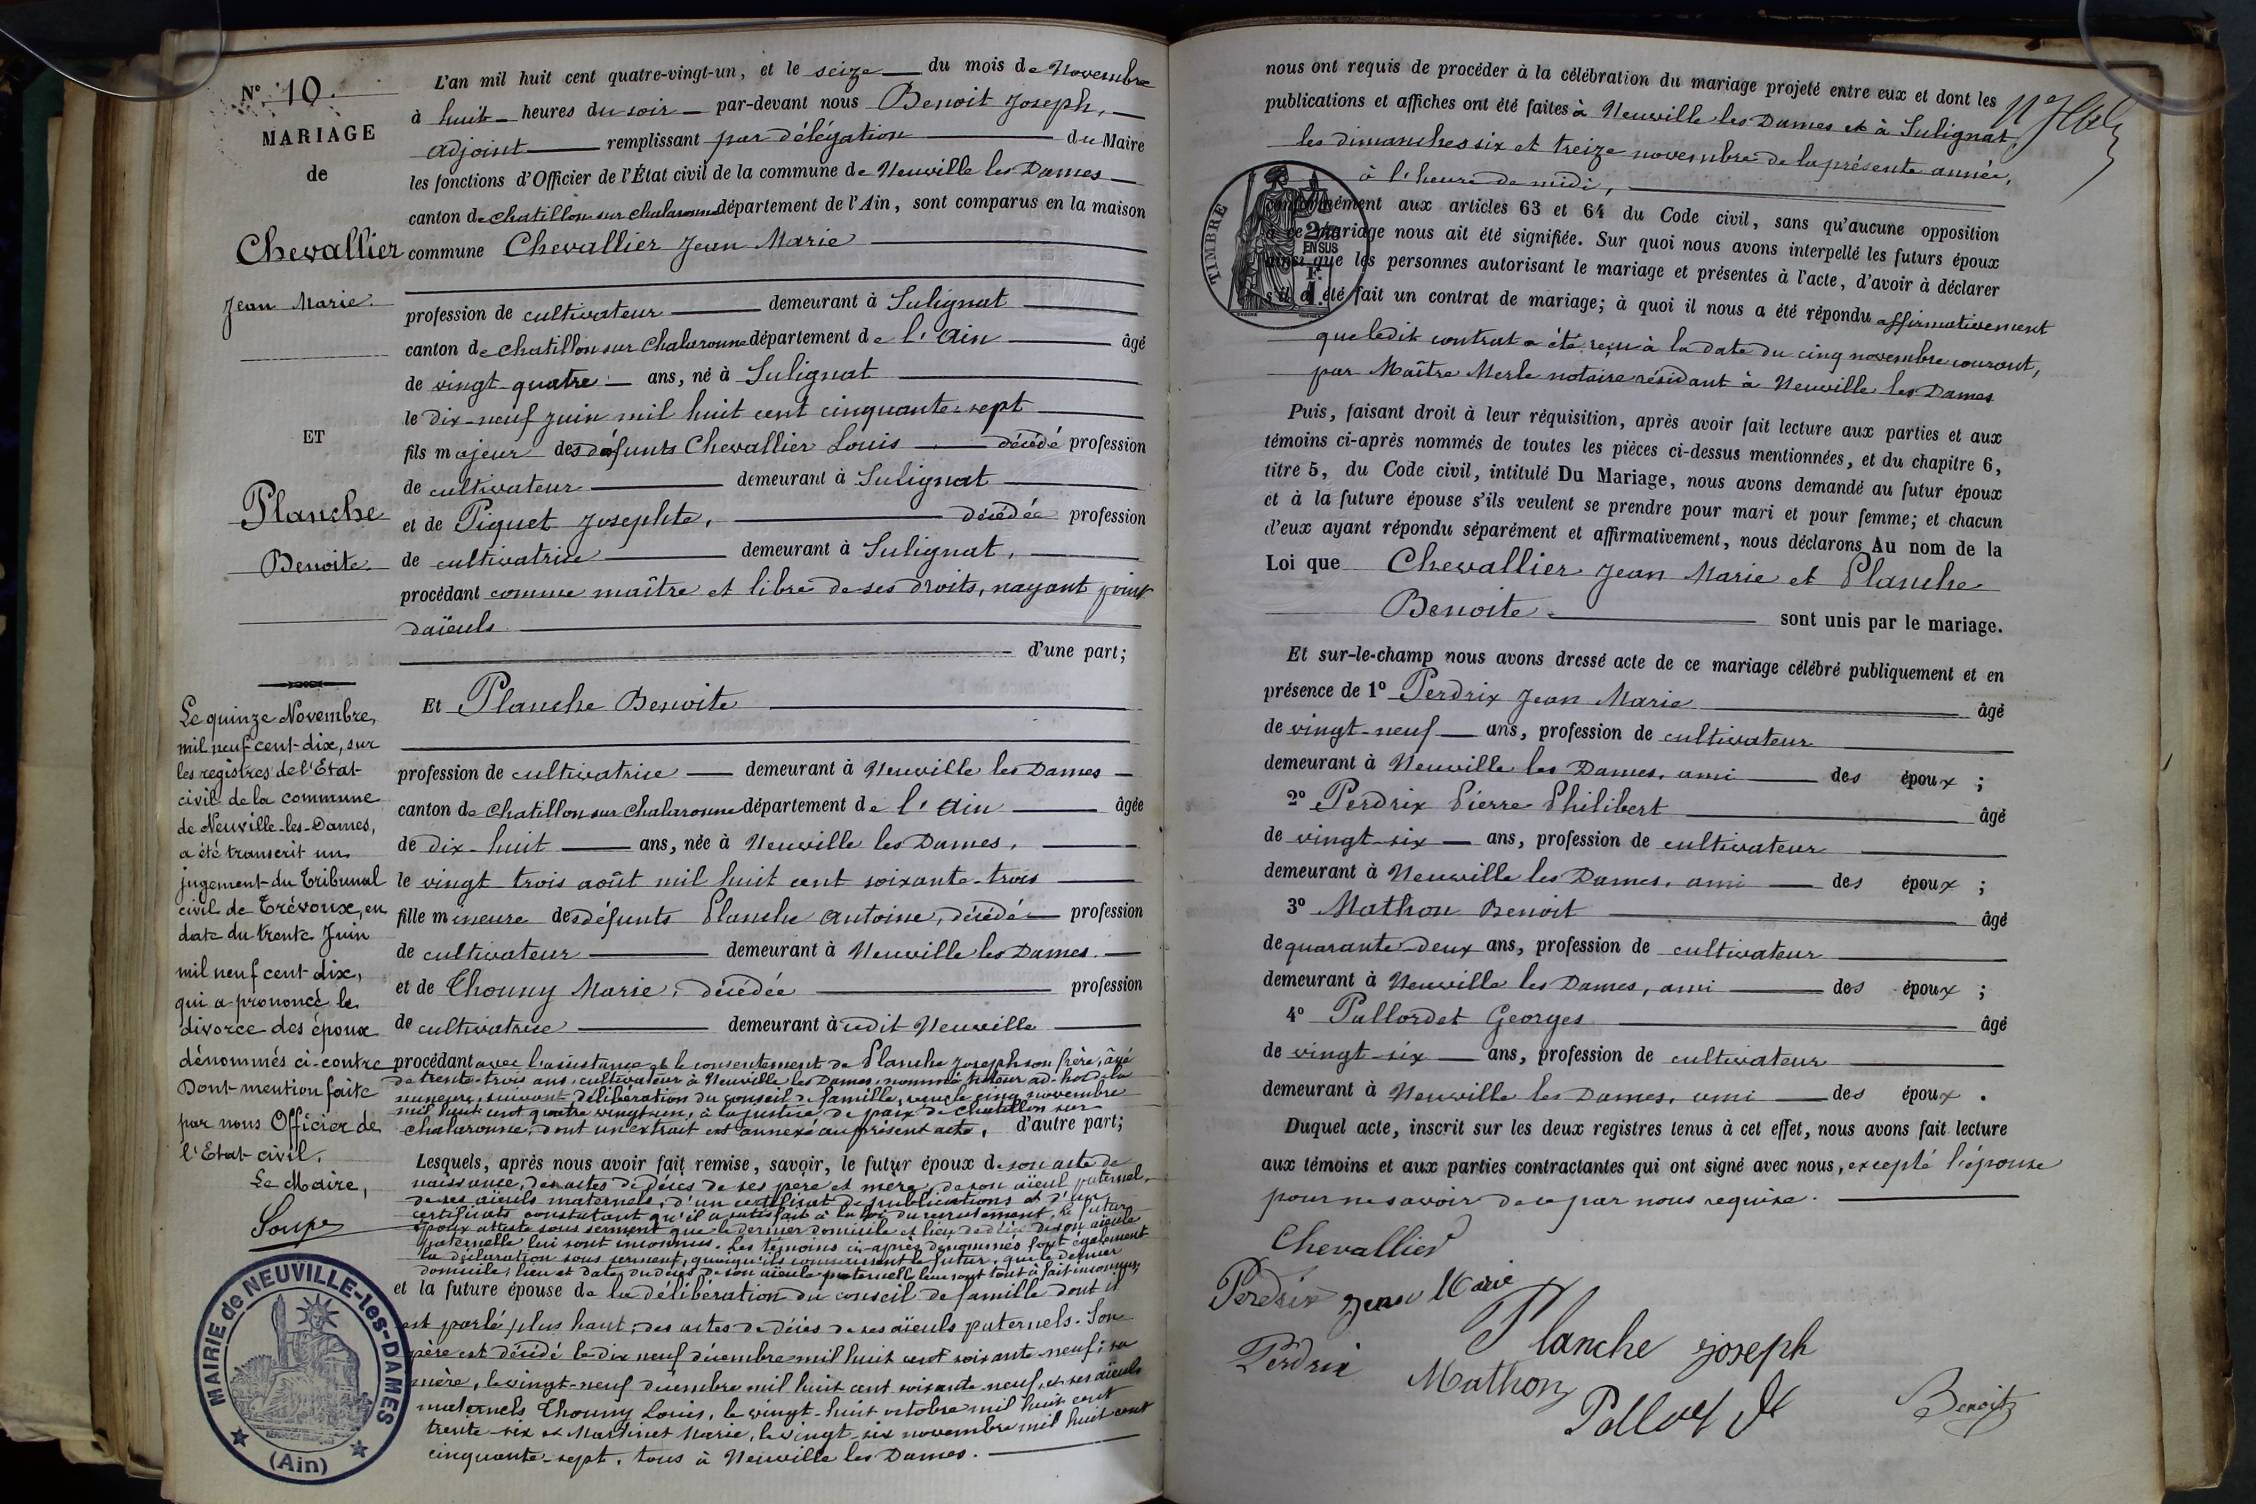 N° 10.
MARIAGE
de
Chevallier
Jean Marie.
ET
Planche
Benoite.
Le quinze Novembre,
mil neuf cent dix, sur
les registres de l'État-
civil de la commune
de Neuville-les-Dames,
a été transcrit un
jugement du Tribunal
civil de Trévoux, en
date du trente Juin
mil neuf cent dix,
qui a prononcé le
divorce des époux
dénommés ci-contre
Dont mention faite
par nous Officier de
l'Etat-civil.
Le Maire,
Soupe
MAIRIE de NEUVILLE-les-DAMES
(Ain)
L'an mil huit cent quatre-vingt-un, et le seize du mois de Novembre
à huit heures du soir par-devant nous Benoit Joseph,
adjoint remplissant par délégation du Maire
les fonctions d'Officier de l'État civil de la commune de Neuville les Dames
canton de Chatillon sur Chalaronne département de l'Ain, sont comparus en la maison
commune Chevallier Jean Marie
profession de cultivateur demeurant à Sulignat
canton de Chatillon sur Chalaronne département de l'Ain âgé
de vingt-quatre ans, né à Sulignat
le dix-neuf juin mil huit cent cinquante-sept
fils majeur des défunts Chevallier Louis décédé profession
de cultivateur demeurant à Sulignat
et de Piquet Josephte, décédée profession
de cultivatrice demeurant à Sulignat,
procédant comme maître et libre de ses droits, nayant point
daïeuls
d'une part;
Et Planche Benoite
profession de cultivatrice demeurant à Neuville les Dames
canton de Chatillon sur Chalaronne département de l'Ain âgée
de dix-huit ans, née à Neuville les Dames,
le vingt trois août mil huit cent soixante-trois
fille mineure des défunts Planche Antoine, décédé profession
de cultivateur demeurant à Neuville les Dames.
et de Thouny Marie, décédée profession
de cultivatrice demeurant à udit Neuville
procédant avec l'assistance et le consentement de Planche Joseph son frère, âgé
de trente-trois ans, cultivateur à Neuville les Dames, nommé tuteur ad-hoc de la
mineure, suivant délibération du conseil de famille, reçue le cinq novembre
mil huit cent quatre vingt-un, à la justice de paix de Chatillon sur
Chalaronne, dont un extrait est annexé au présent acte, d'autre part;
Lesquels, après nous avoir fait remise, savoir, le futur époux de son acte de
naissance, des actes de décès de ses père et mère, de son aïeul paternel,
de ses aïeuls maternels, d'un certificat de publications et d'un
certificats constatant qu'il a satisfait à la loi du recrutement, le futur
époux atteste sous serment que le dernier domicile et lieu de décès de son aïeule
paternelle lui sont inconnus. Les témoins ci-après dénommés font également
la déclaration sous serment, quoiqu'ils connaissent le futur, que le dernier
domicile, lieu et date du décès de son aïeule paternelle leur sont tout à fait inconnus,
et la future épouse de la délibération du conseil de famille dont il
est parlé plus haut, des actes de décès de ses aïeuls paternels. Son
père est décédé le dix neuf décembre mil huit cent soixante neuf; sa
mère, le vingt-neuf décembre mil huit cent soixante neuf, et ses aïeuls
maternels Thouny Louis, le vingt-huit octobre mil huit cent
trente-six et Martinet Marie, le vingt-six novembre mil huit cent
cinquante-sept, tous à Neuville les Dames.
nous ont requis de procéder à la célébration du mariage projeté entre eux et dont les
publications et affiches ont été faites à Neuville les Dames et à Sulignat,
les dimanches six et treize novembre de la présente année,
à l'heure de midi,
TIMBRE
2/10
EN SUS
conformément aux articles 63 et 64 du Code civil, sans qu'aucune opposition
à ce mariage nous ait été signifiée. Sur quoi nous avons interpellé les futurs époux
ainsi que les personnes autorisant le mariage et présentes à l'acte, d'avoir à déclarer
s'il a été fait un contrat de mariage; à quoi il nous a été répondu affirmativement
que ledit contrat a été reçu à la date du cinq novembre courant,
par Maître Merle notaire résidant à Neuville les Dames
Puis, faisant droit à leur réquisition, après avoir fait lecture aux parties et aux
témoins ci-après nommés de toutes les pièces ci-dessus mentionnées, et du chapitre 6,
titre 5, du Code civil, intitulé Du Mariage, nous avons demandé au futur époux
et à la future épouse s'ils veulent se prendre pour mari et pour femme; et chacun
d'eux ayant répondu séparément et affirmativement, nous déclarons Au nom de la
Loi que Chevallier Jean Marie et Planche
Benoite. sont unis par le mariage.
Et sur-le-champ nous avons dressé acte de ce mariage célébré publiquement et en
présence de 1° Perdrix Jean Marie âgé
de vingt-neuf ans, profession de cultivateur
demeurant à Neuville les Dames, ami des époux ;
2° Perdrix Pierre Philibert âgé
de vingt-six ans, profession de cultivateur
demeurant à Neuville les Dames, ami des époux ;
3° Mathon Benoit âgé
de quarante-deux ans, profession de cultivateur
demeurant à Neuville les Dames, ami des époux ;
4° Pallordet Georges âgé
de vingt-six ans, profession de cultivateur
demeurant à Neuville les Dames, ami des époux .
Duquel acte, inscrit sur les deux registres tenus à cet effet, nous avons fait lecture
aux témoins et aux parties contractantes qui ont signé avec nous, excepté l'épouse
pour ne savoir de ce par nous requise.
Chevallier
Perdrix Jean Marie
Planche Joseph
Perdrix
Mathon
Benoit